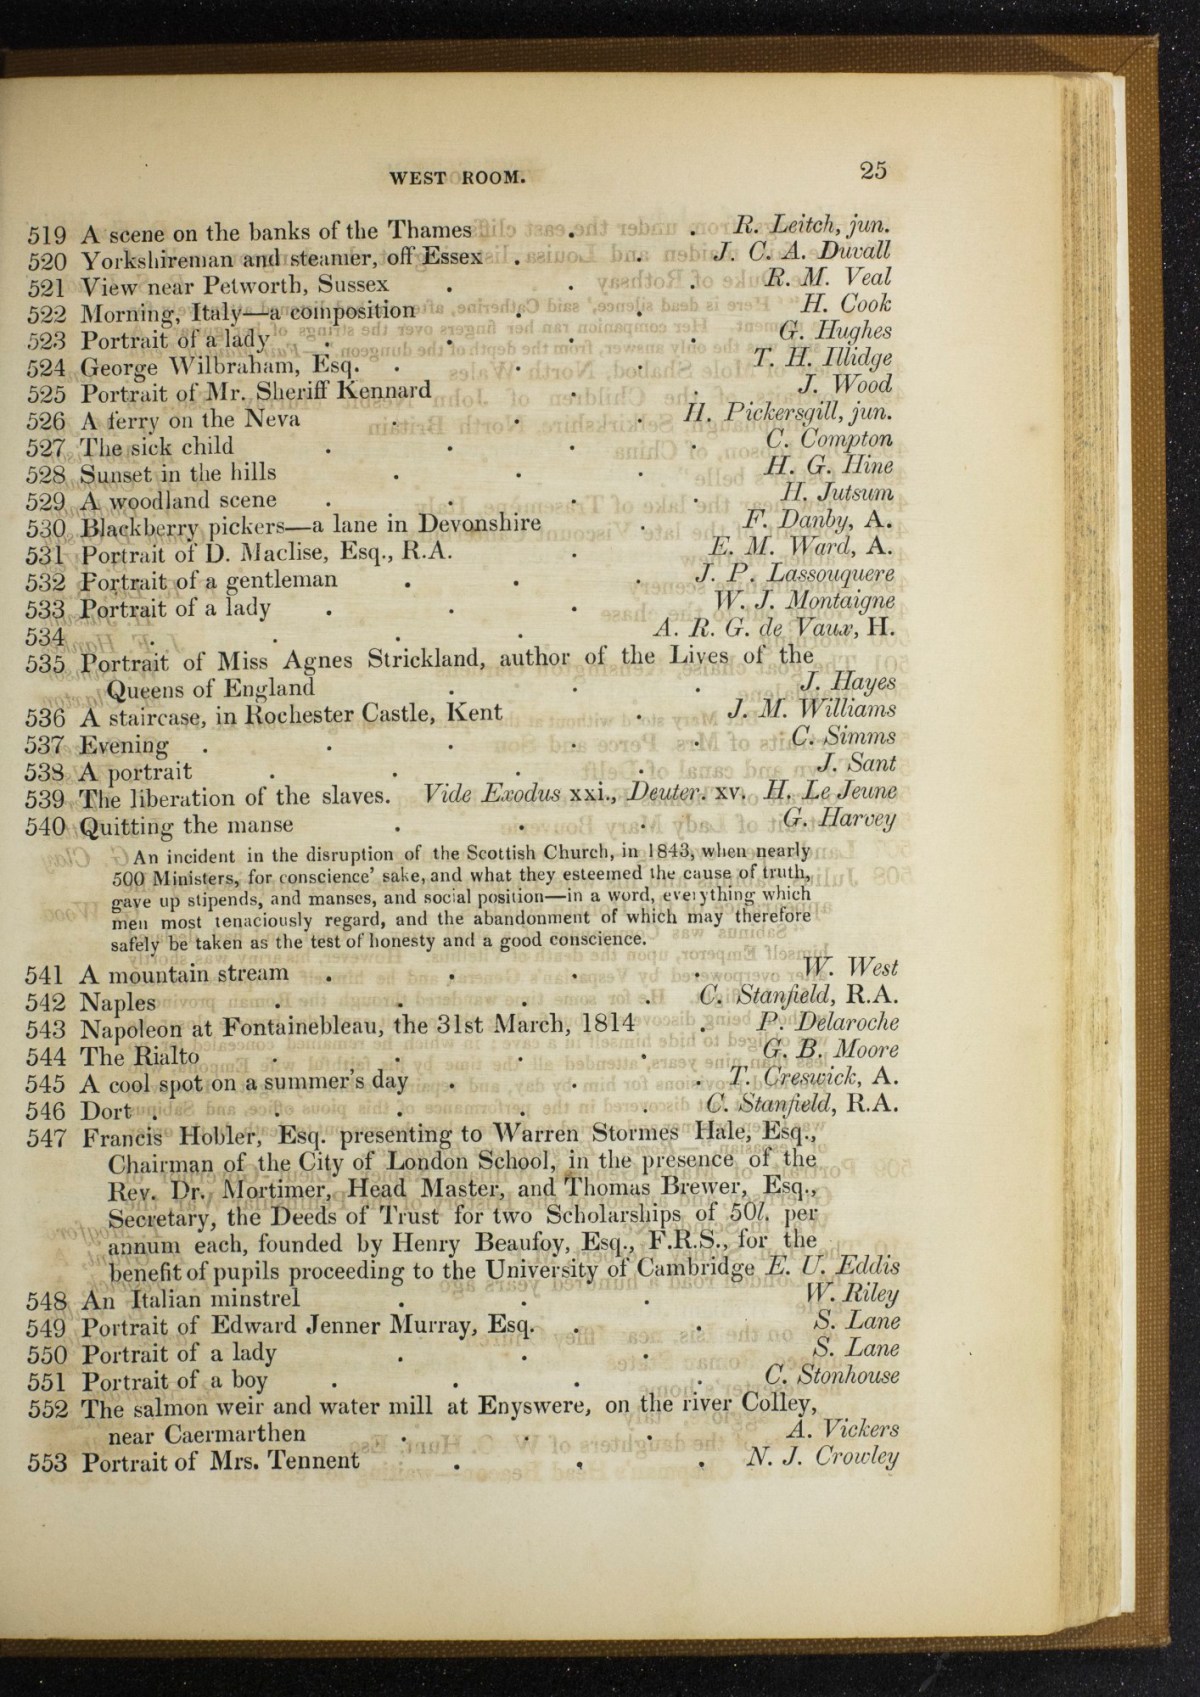 WEST ROOM. 25
519 A scene on the banks of the Thames . . R. Leitch, jun.
520 Yorkshireman and steamer, off Essex . . J. C. A. Duvall
521 View near Petworth, Sussex . . . R. M. Veal
522 Morning, Italy—a composition . . H. Cook
523 Portrait of a lady . . . . G. Hughes
524 George Wilbraham, Esq. . . . T. H. Illidge
525 Portrait of Mr. Sheriff Kennard . . J. Wood
526 A ferry on the Neva . . . H. Pickersgill, jun.
527 The sick child . . . . C. Compton
528 Sunset in the hills . . . H. G. Hine
529 A woodland scene . . . . H. Jutsum
530 Blackberry pickers—a lane in Devonshire . F. Danby, A.
531 Portrait of D. Maclise, Esq., R.A. . E. M. Ward, A.
532 Portrait of a gentleman . . . J. P. Lassouquere
533 Portrait of a lady . . . W. J. Montaigne
534 . . . . A. R. G. de Vaux, H.
535 Portrait of Miss Agnes Strickland, author of the Lives of the
Queens of England . . . J. Hayes
536 A staircase, in Rochester Castle, Kent . J. M. Williams
537 Evening . . . . . C. Simms
538 A portrait . . . . J. Sant
539 The liberation of the slaves. Vide Exodus xxi., Deuter. xv. H. Le Jeune
540 Quitting the manse . . . G. Harvey
An incident in the disruption of the Scottish Church, in 1843, when nearly
500 Ministers, for conscience' sake, and what they esteemed the cause of truth,
gave up stipends, and manses, and social position—in a word, everything which
men most tenaciously regard, and the abandonment of which may therefore
safely be taken as the test of honesty and a good conscience.
541 A mountain stream . . . . W. West
542 Naples . . . . C. Stanfield, R.A.
543 Napoleon at Fontainebleau, the 31st March, 1814 . P. Delaroche
544 The Rialto . . . . G. B. Moore
545 A cool spot on a summer's day . . . T. Creswick, A.
546 Dort . . . . . C. Stanfield, R.A.
547 Francis Hobler, Esq. presenting to Warren Stormes Hale, Esq.,
Chairman of the City of London School, in the presence of the
Rev. Dr. Mortimer, Head Master, and Thomas Brewer, Esq.,
Secretary, the Deeds of Trust for two Scholarships of 50l. per
annum each, founded by Henry Beaufoy, Esq., F.R.S., for the
benefit of pupils proceeding to the University of Cambridge E. U. Eddis
548 An Italian minstrel . . . W. Riley
549 Portrait of Edward Jenner Murray, Esq. . . S. Lane
550 Portrait of a lady . . . S. Lane
551 Portrait of a boy . . . . C. Stonhouse
552 The salmon weir and water mill at Enyswere, on the river Colley,
near Caermarthen . . . A. Vickers
553 Portrait of Mrs. Tennent . . . N. J. Crowley